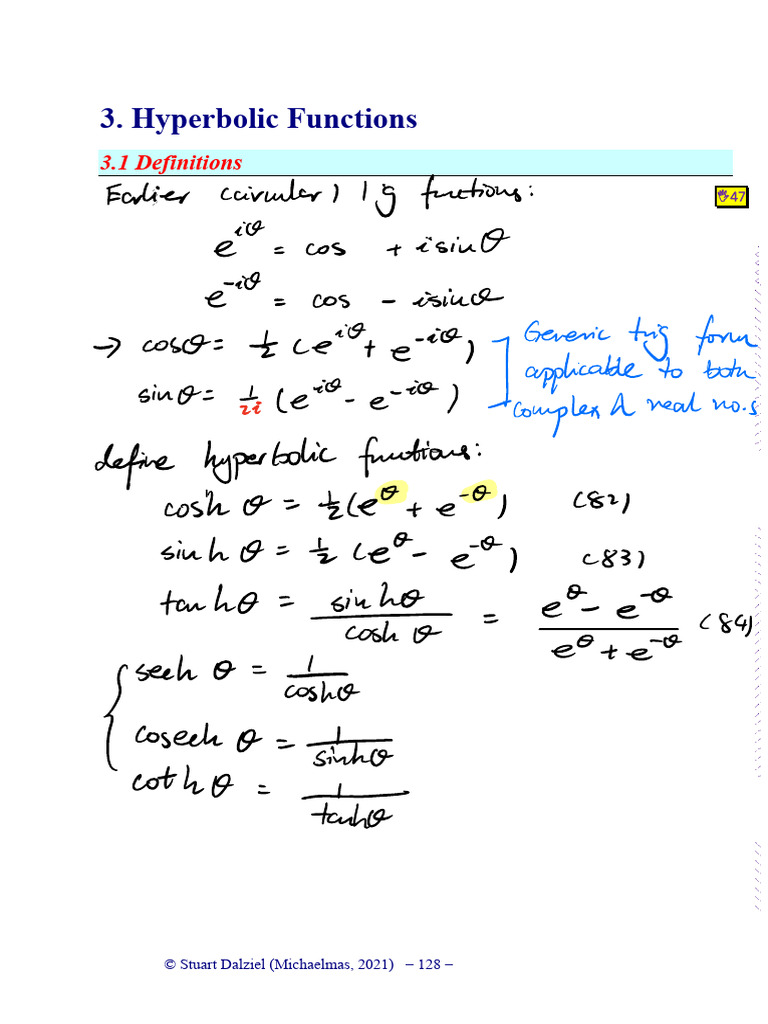 3. Hyperbolic Functions
3.1 Definitions
Earlier (circular) trig functions:
47
e^{iθ} = cos + i sinθ
e^{-iθ} = cos - i sinθ
→ cosθ = 1/2 (e^{iθ} + e^{-iθ})
sinθ = 1/2i (e^{iθ} - e^{-iθ})
Generic trig form
applicable to both
complex & real no.s
define hyperbolic functions:
cosh θ = 1/2 (e^θ + e^{-θ}) (82)
sinh θ = 1/2 (e^θ - e^{-θ}) (83)
tanh θ = sinhθ / cosh θ = (e^θ - e^{-θ}) / (e^θ + e^{-θ}) (84)
sech θ = 1 / coshθ
cosech θ = 1 / sinhθ
coth θ = 1 / tanhθ
© Stuart Dalziel (Michaelmas, 2021) – 128 –